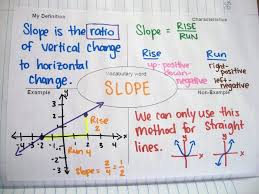 My Definition
Slope is the ratio
of vertical change
to horizontal
change.
Characteristics
Slope = RISE
RUN
Rise
up-positive
down-
negative
Run
right-
positive
left-
negative
Vocabulary word
SLOPE
Example
y
3
2
1
-4 -3 -2
1 2 3
x
-1
-2
-3
Rise
2
Run 4
slope = 2/4 = 1/2
Non-Example
We can only use this
method for straight
lines.